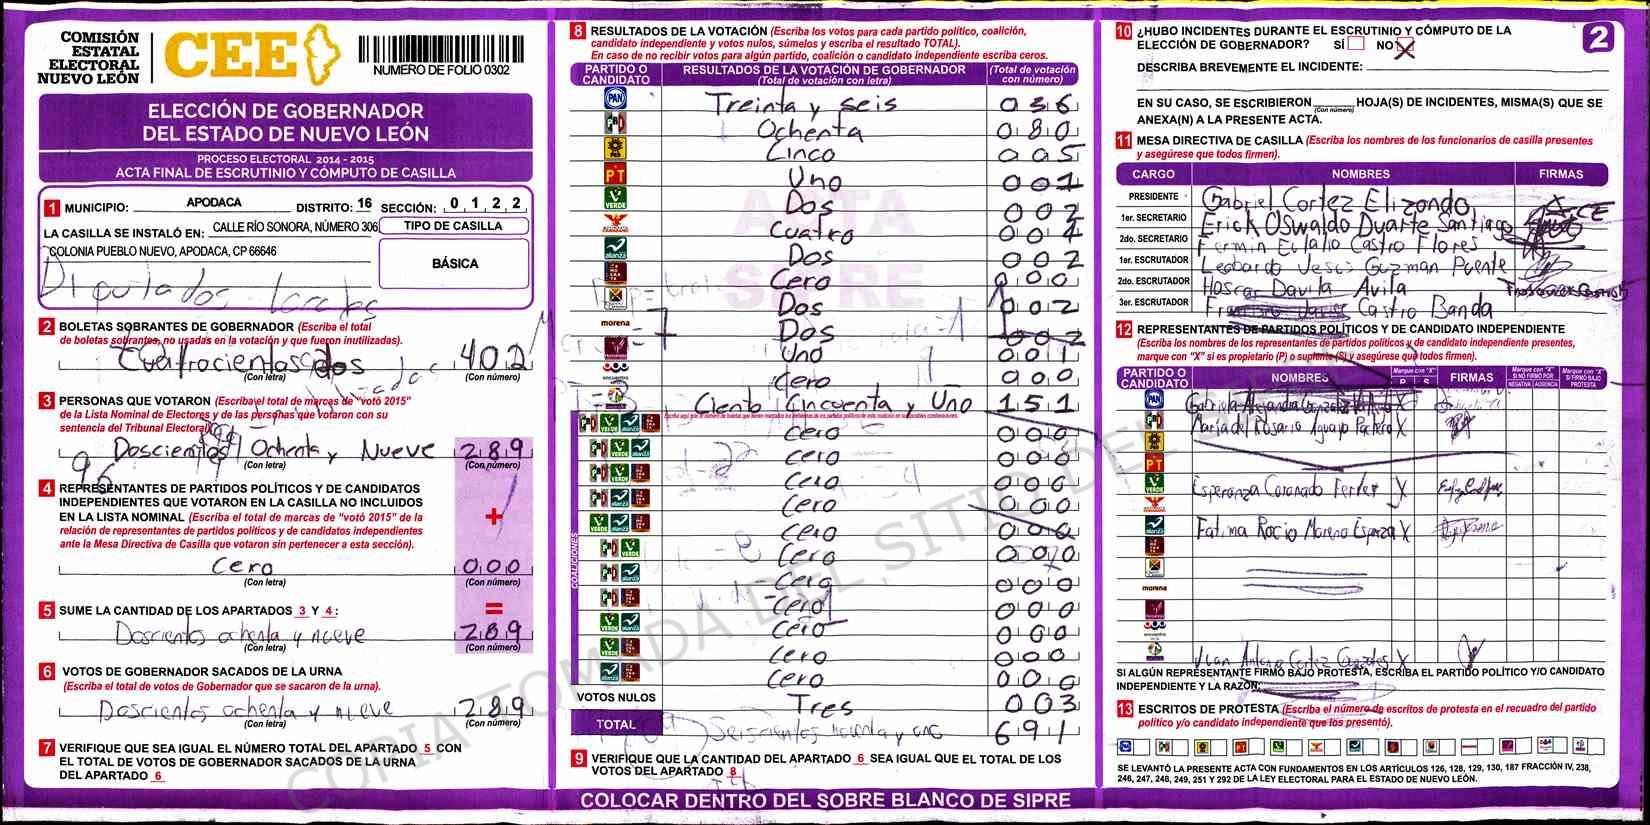 COMISIÓN
ESTATAL
ELECTORAL
NUEVO LEÓN
CEE
NUMERO DE FOLIO 0302
ELECCIÓN DE GOBERNADOR
DEL ESTADO DE NUEVO LEÓN
PROCESO ELECTORAL 2014 - 2015
ACTA FINAL DE ESCRUTINIO Y CÓMPUTO DE CASILLA
1 MUNICIPIO: APODACA DISTRITO: 16 SECCIÓN: 0 1 2 2
LA CASILLA SE INSTALÓ EN: CALLE RÍO SONORA, NÚMERO 306
COLONIA PUEBLO NUEVO, APODACA, CP 66646
TIPO DE CASILLA
BÁSICA
Diputados locales
2 BOLETAS SOBRANTES DE GOBERNADOR (Escriba el total
de boletas sobrantes, no usadas en la votación y que fueron inutilizadas).
Cuatrocientos dos 402
(Con letra) (Con número)
3 PERSONAS QUE VOTARON (Escriba el total de marcas de "votó 2015"
de la Lista Nominal de Electores y de las personas que votaron con su
sentencia del Tribunal Electoral)
Doscientos Ochenta y Nueve 289
(Con letra) (Con número)
96
4 REPRESENTANTES DE PARTIDOS POLÍTICOS Y DE CANDIDATOS
INDEPENDIENTES QUE VOTARON EN LA CASILLA NO INCLUIDOS
EN LA LISTA NOMINAL (Escriba el total de marcas de "votó 2015" de la
relación de representantes de partidos políticos y de candidatos independientes
ante la Mesa Directiva de Casilla que votaron sin pertenecer a esta sección).
+
Cero 000
(Con letra) (Con número)
5 SUME LA CANTIDAD DE LOS APARTADOS 3 Y 4:
=
Doscientos ochenta y nueve 289
(Con letra) (Con número)
6 VOTOS DE GOBERNADOR SACADOS DE LA URNA
(Escriba el total de votos de Gobernador que se sacaron de la urna).
Doscientos ochenta y nueve 289
(Con letra) (Con número)
7 VERIFIQUE QUE SEA IGUAL EL NÚMERO TOTAL DEL APARTADO 5 CON
EL TOTAL DE VOTOS DE GOBERNADOR SACADOS DE LA URNA
DEL APARTADO 6
8 RESULTADOS DE LA VOTACIÓN (Escriba los votos para cada partido político, coalición,
candidato independiente y votos nulos, súmelos y escriba el resultado TOTAL).
En caso de no recibir votos para algún partido, coalición o candidato independiente escriba ceros.
PARTIDO O CANDIDATO
RESULTADOS DE LA VOTACIÓN DE GOBERNADOR
(Total de votación con letra)
(Total de votación con número)
PAN Treinta y seis 036
PRI Ochenta 080
PRD Cinco 005
PT Uno 001
VERDE Dos 002
Cuatro 004
alianza Dos 002
Cero 000
Dos 002
morena Dos 002
Uno 001
Cero 000
Ciento Cincuenta y Uno 151
COALICIONES
Cero 000
Cero 000
Cero 000
Cero 000
Cero 000
Cero 000
Cero 000
Cero 000
Cero 000
Cero 000
Cero 000
VOTOS NULOS Tres 003
TOTAL Seiscientos noventa y uno 691
9 VERIFIQUE QUE LA CANTIDAD DEL APARTADO 6 SEA IGUAL QUE EL TOTAL DE LOS
VOTOS DEL APARTADO 8
ACTA
SIPRE
COPIA TOMADA DEL SITIO DEL S
COLOCAR DENTRO DEL SOBRE BLANCO DE SIPRE
2
10 ¿HUBO INCIDENTES DURANTE EL ESCRUTINIO Y CÓMPUTO DE LA
ELECCIÓN DE GOBERNADOR? SÍ NO X
DESCRIBA BREVEMENTE EL INCIDENTE:
EN SU CASO, SE ESCRIBIERON HOJA(S) DE INCIDENTES, MISMA(S) QUE SE
(Con número)
ANEXA(N) A LA PRESENTE ACTA.
11 MESA DIRECTIVA DE CASILLA (Escriba los nombres de los funcionarios de casilla presentes
y asegúrese que todos firmen).
CARGO NOMBRES FIRMAS
PRESIDENTE Gabriel Cortez Elizondo
1er. SECRETARIO Erick Oswaldo Duarte Santiago
2do. SECRETARIO Fermin Eulalio Castro Flores
1er. ESCRUTADOR Leobardo Jesus Guzman Puente
2do. ESCRUTADOR Hoscar Davila Avila
3er. ESCRUTADOR Francisco Javier Castro Banda
12 REPRESENTANTES DE PARTIDOS POLÍTICOS Y DE CANDIDATO INDEPENDIENTE
(Escriba los nombres de los representantes de partidos políticos y de candidato independiente presentes,
marque con "X" si es propietario (P) o suplente (S) y asegúrese que todos firmen).
PARTIDO O CANDIDATO NOMBRES Marque con "X" P S FIRMAS Marque con "X" SI NO FIRMÓ POR NEGATIVA AUSENCIA Marque con "X" SI FIRMÓ BAJO PROTESTA
PAN Gabriela Alejandra Gonzalez X
Maria del Rosario Aguayo Pacheco X
PRD
PT
VERDE Esperanza Coronado Ferrer X
alianza Fatima Rocio Moreno Esparza X
morena
Juan Antonio Cortez Gonzales X
SI ALGÚN REPRESENTANTE FIRMÓ BAJO PROTESTA, ESCRIBA EL PARTIDO POLÍTICO Y/O CANDIDATO
INDEPENDIENTE Y LA RAZÓN:
13 ESCRITOS DE PROTESTA (Escriba el número de escritos de protesta en el recuadro del partido
político y/o candidato independiente que los presentó).
SE LEVANTÓ LA PRESENTE ACTA CON FUNDAMENTOS EN LOS ARTÍCULOS 126, 128, 129, 130, 187 FRACCIÓN IV, 238,
246, 247, 248, 249, 251 Y 292 DE LA LEY ELECTORAL PARA EL ESTADO DE NUEVO LEÓN.